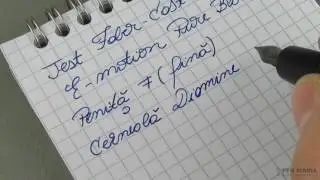 Test Faber-Cast
E-motion Pure Bl
Peniță F (fină)
Cerneală Diamine